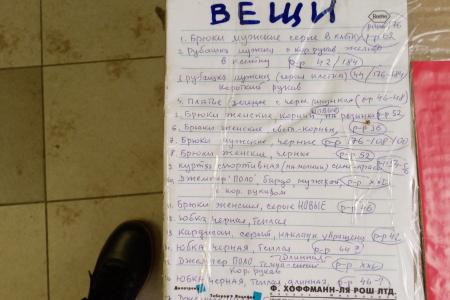 ВЕЩИ
Roche
1. Брюки мужские серые в клетку р-р 52
2. Рубашка мужск с кор. рукав
р-р 42/184
3. рубашка мужск (серая клетка) 44/176-184
короткий рукав
4. Платье с черн. (р-р 46-48)
5. Брюки женские, коричн, на резинке р-р 52
6. Брюки женские светл-коричн, р-р 36
7. Брюки мужские черные р-р 176-108/100
8. Брюки женские, черные р-р 52
9. куртка спортивная (на молнии) сине-красн
10. Джемпер "Поло" бордо мужской р-р XXL
с кор. рукавом
11. Брюки женские, серые НОВЫЕ р-р 46
12. Юбка черная, теплая
13. Кардиган, серый, р-р 42
14. Юбка черная, теплая р-р 44?
длинная
15. Джемпер ПОЛО, темно-синий р-р XXL
Кор. рукав
16. Юбка черная, теплая, длинная р-р 46-?
Ф. ХОФФМАНН-ЛЯ РОШ ЛТД.